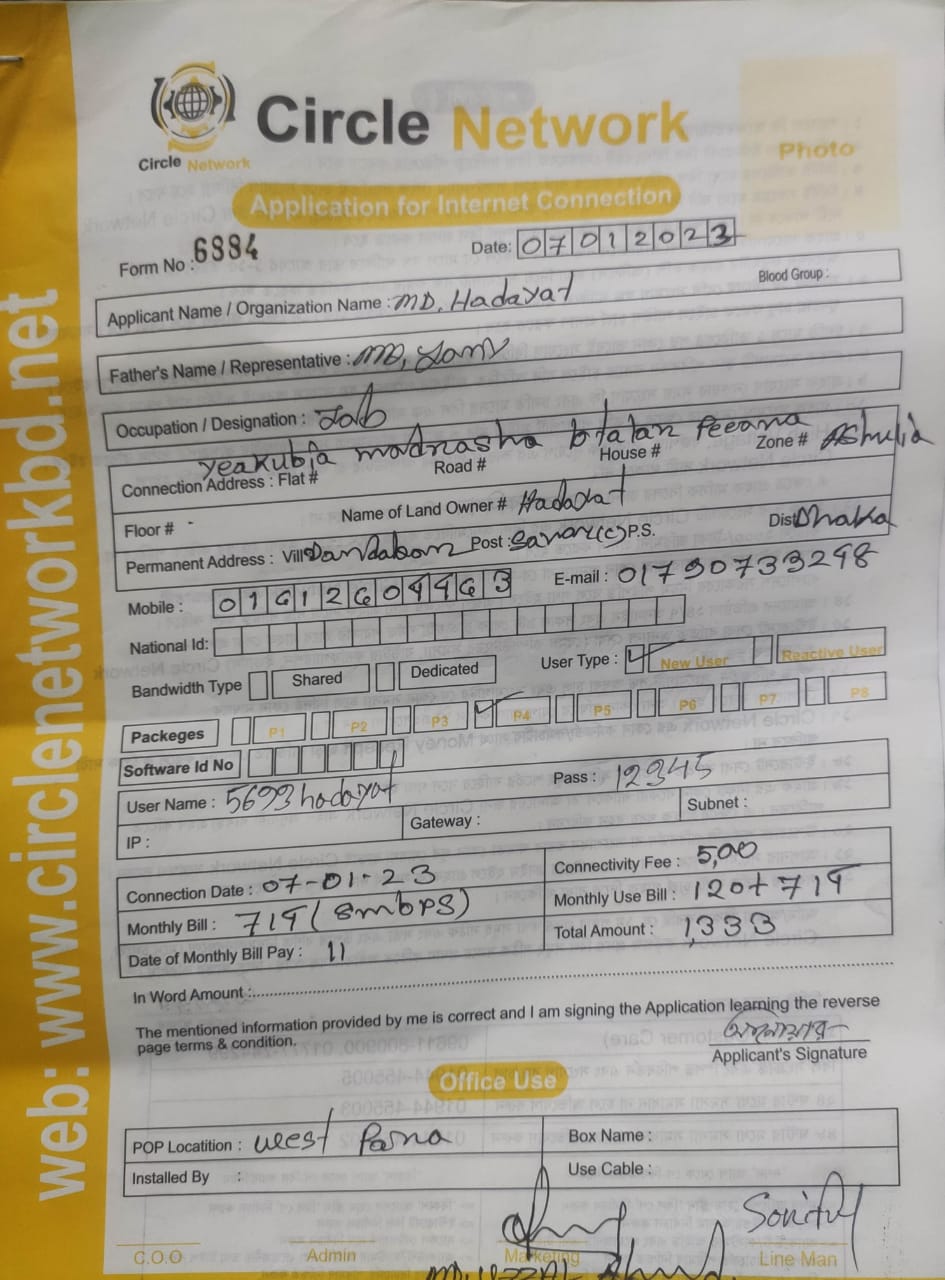 Circle Network
Circle Network
Photo
Application for Internet Connection
Form No : 6884
Date: 07012023
Applicant Name / Organization Name : MD. Hadayat
Blood Group :
Father's Name / Representative : MD,
Occupation / Designation : Job
yeakubia madrasha
Connection Address : Flat # Road # House # Zone # Ashulia
Floor # Name of Land Owner # Hadayat
Permanent Address : Vill Dandabon Post : Savar(c) P.S. Dist Dhaka
Mobile : E-mail : 01790733298
National Id:
Bandwidth Type Shared Dedicated User Type : New User Reactive User
Packeges P1 P2 P3 P4 P5 P6 P7 P8
Software Id No
User Name : 5693hadayat Pass : 12345
IP : Gateway : Subnet :
Connection Date : 07-01-23 Connectivity Fee : 5,00
Monthly Bill : 719 (8mbps) Monthly Use Bill : 120+719
Date of Monthly Bill Pay : 11 Total Amount : 1,333
In Word Amount :
The mentioned information provided by me is correct and I am signing the Application learning the reverse
page terms & condition.
Applicant's Signature
Office Use
POP Locatition : West Parna Box Name :
Installed By : Use Cable :
C.O.O Admin Marketing Line Man
web: www.circlenetworkbd.net